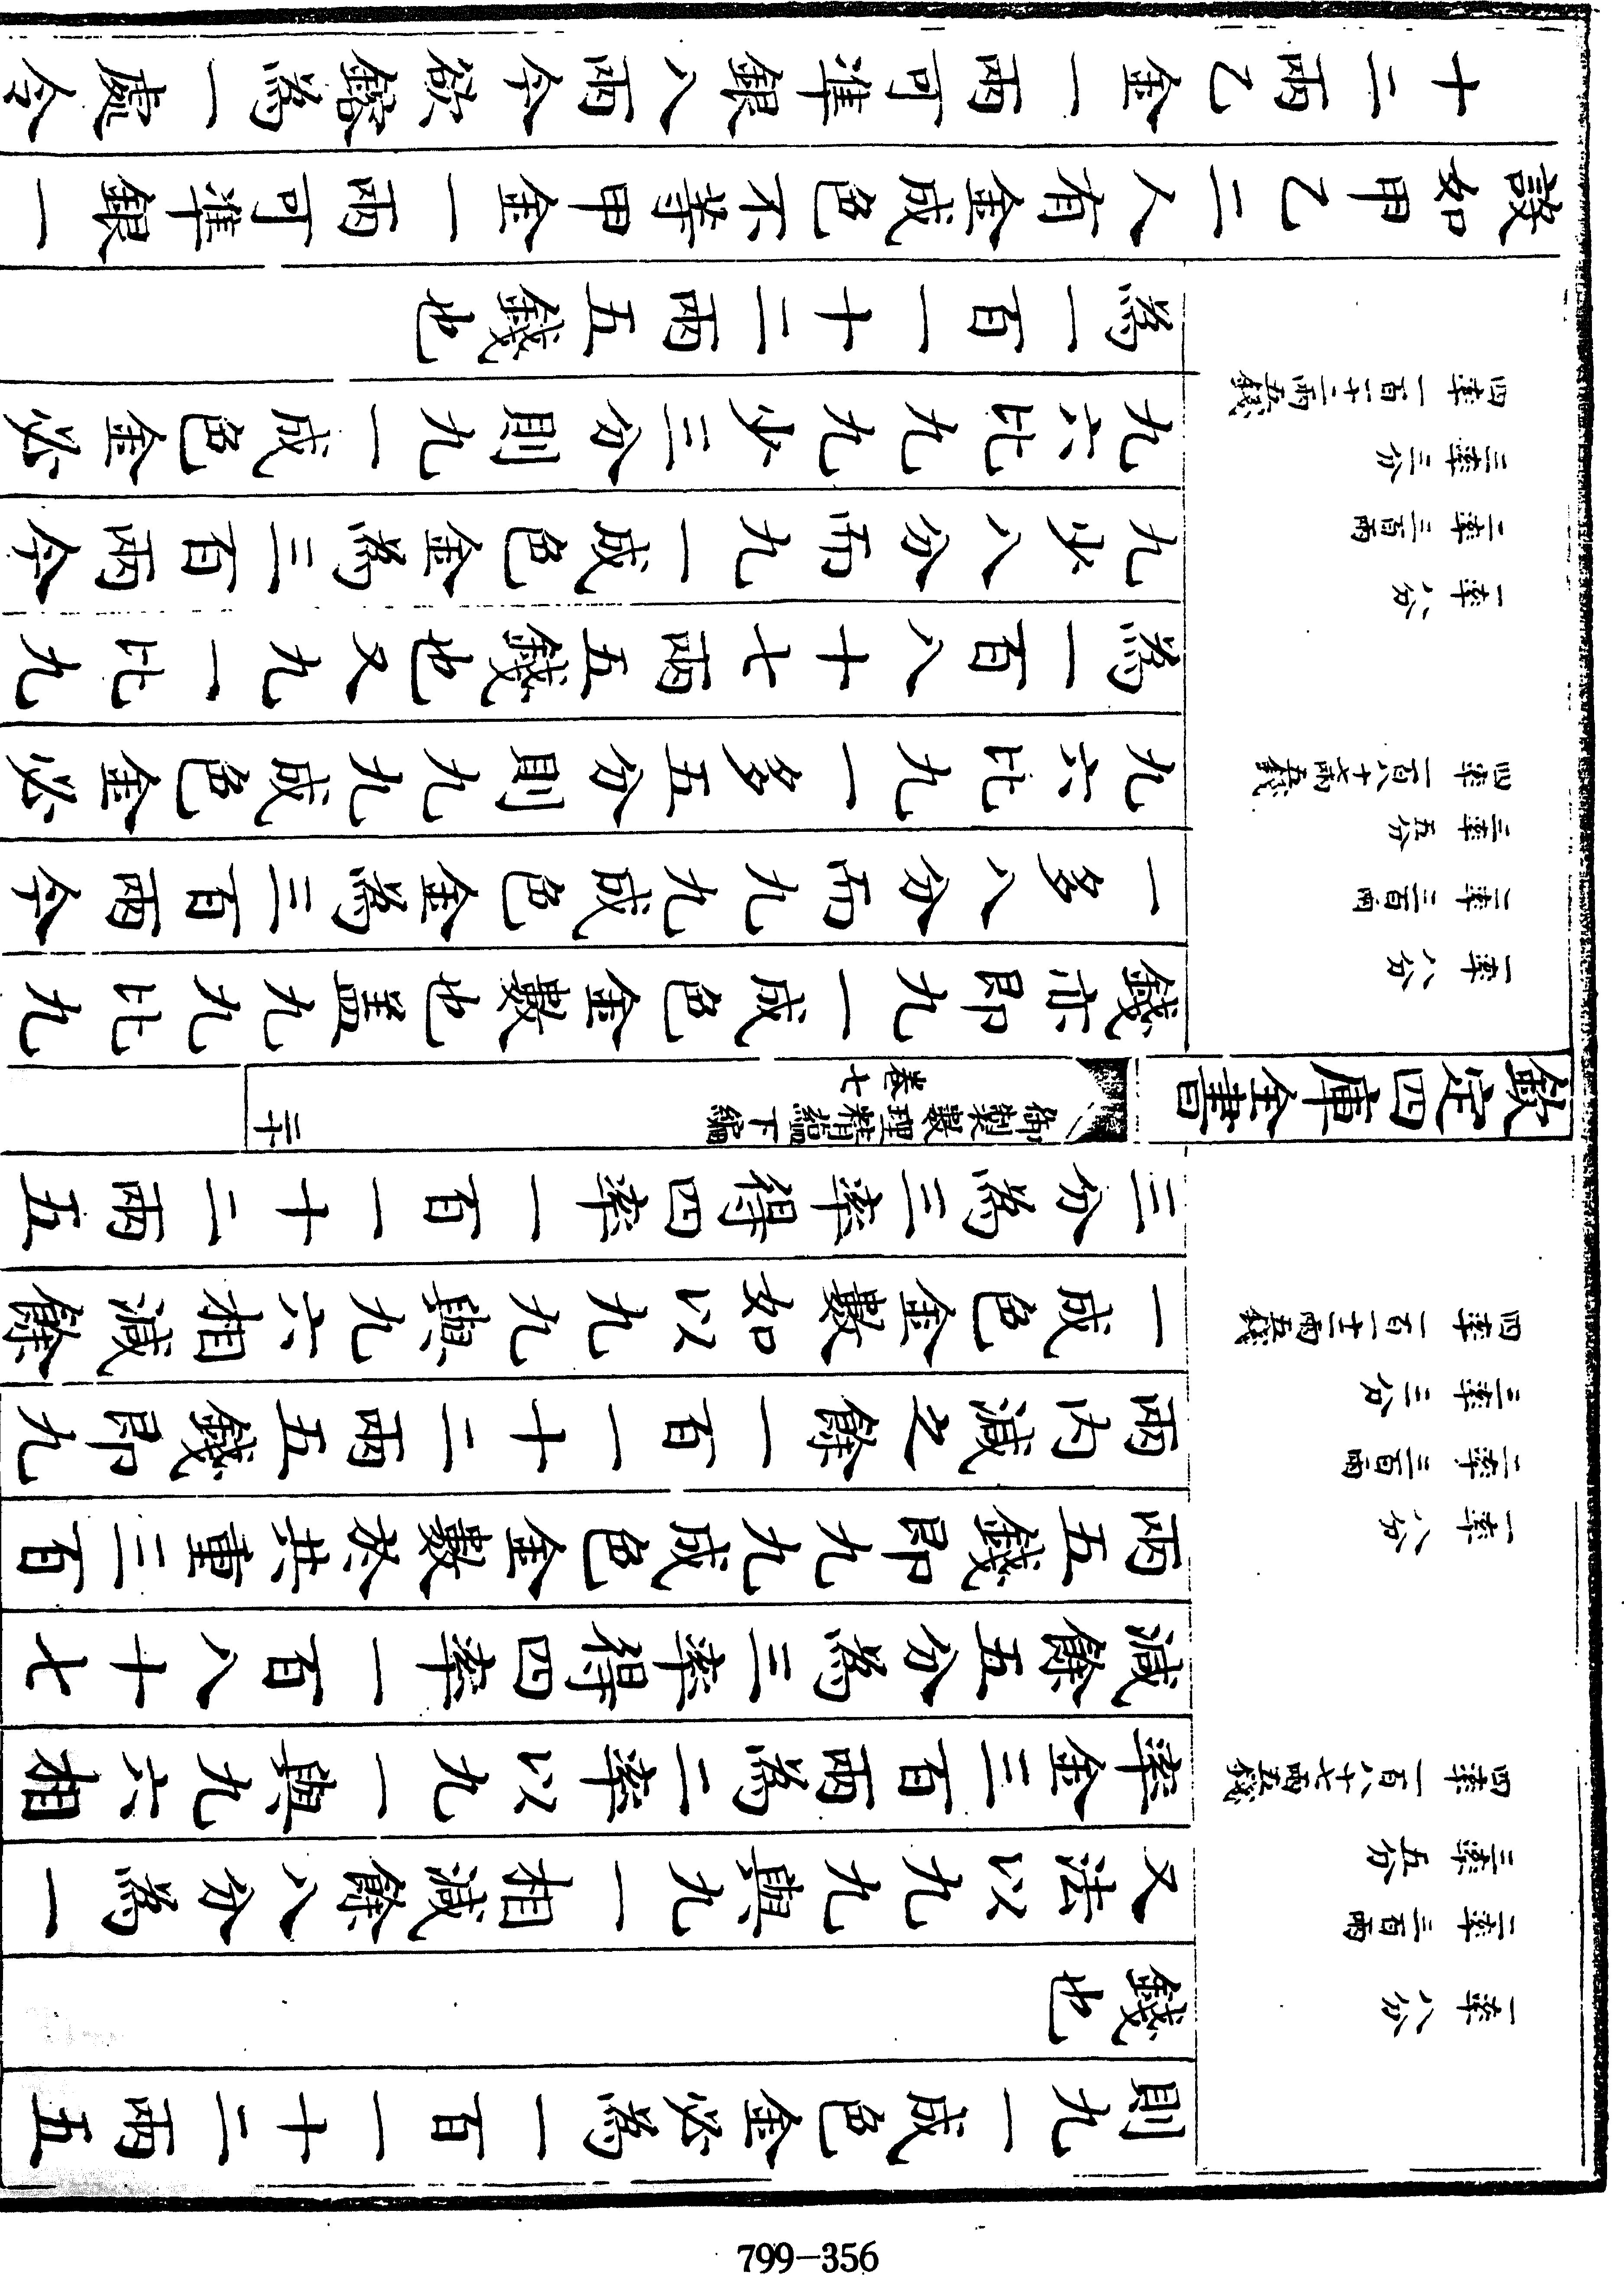 則九一成色金必為一百一十二兩五
錢也
一率 八分
二率 三百兩
三率 五分
四率 一百八十七兩五錢
又法以九九與九一相減餘八分為一
率金三百兩為二率以九一與九六相
減餘五分為三率得四率一百八十七
兩五錢即九九成色金數於共重三百
一率 八分
二率 三百兩
三率 三分
四率 一百一十二兩五錢
兩內減之餘一百一十二兩五錢即九
一成色金數如以九九與九六相減餘
三分為三率得四率一百一十二兩五
欽定四庫全書
御製數理精蘊下編
卷七
二十
錢亦即九一成色金數也蓋九九比九
一率 八分
二率 三百兩
三率 五分
四率 一百八十七兩五錢
一多八分而九九成色金為三百兩今
九六比九一多五分則九九成色金必
為一百八十七兩五錢也又九一比九
一率 八分
二率 三百兩
三率 三分
四率 一百一十二兩五錢
九少八分而九一成色金為三百兩今
九六比九九少三分則九一成色金必
為一百一十二兩五錢也
設如甲乙二人有金成色不等甲金一兩可準銀一
十二兩乙金一兩可準銀八兩今欲鎔為一處令
799-356